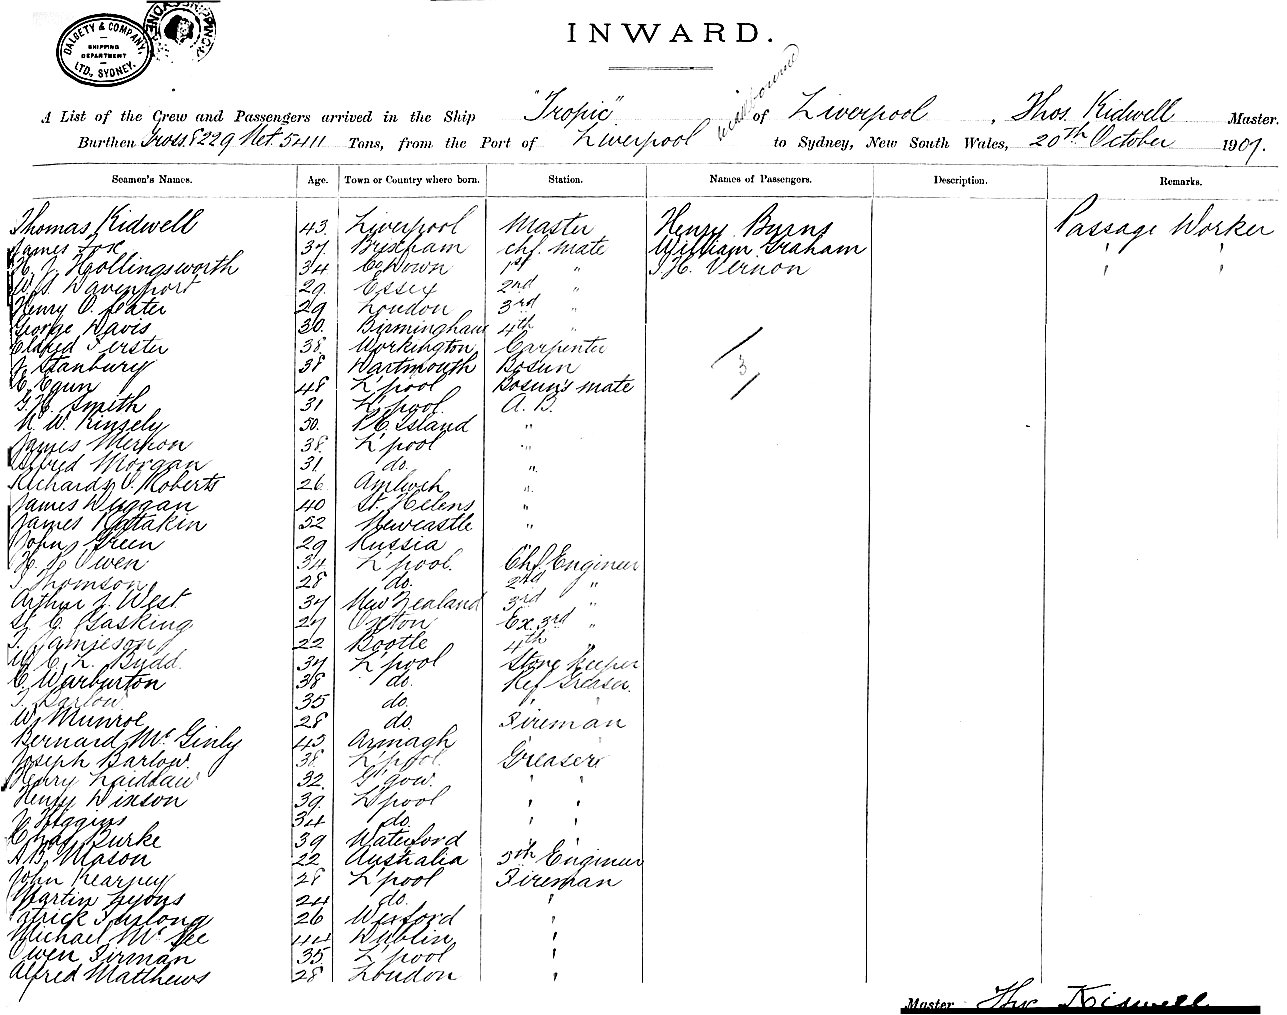 DALGETY & COMPANY, LTD., SYDNEY.
SHIPPING DEPARTMENT
INWARD.
A List of the Crew and Passengers arrived in the Ship "Tropic" of Liverpool, Thos. Kidwell Master.
Burthen Gross 8229 Net. 5411 Tons, from the Port of Liverpool to Sydney, New South Wales, 20th October 1907.
Seamen's Names. Age. Town or Country where born. Station. Names of Passengers. Description. Remarks.
Thomas Kidwell 43 Liverpool Master Henry Burns Passage Worker
James Fox 37 Brixham chf. mate William Graham
H. J. Hollingsworth 34 Co Down 1st " J. H. Vernon ' '
Davenport 29 Essex 2nd "
Henry O. 29 London 3rd "
George Davis 30 Birmingham 4th "
38 Workington Carpenter
J. Stanbury 38 Dartmouth Bosun 3
C. Egun 48 L'pool Bosun's mate
G. H. Smith 31 L'pool A. B.
W. Kinsely 50 P. E. Island "
James 38 L'pool "
Alfred Morgan 31 do. "
Richard O. Roberts 26 Amlwch "
James Duggan 40 St. Helens "
James 52 Newcastle "
John Green 29 Russia "
Owen 34 L'pool. Chf Engineer
Thomson 28 do. 2nd "
Arthur J. West 37 New Zealand 3rd "
Gasking 27 Oxton Ex 3rd "
J. Jamieson 22 Bootle 4th "
W. C. L. Budd. 37 L'pool Store keeper
C. Warburton 38 do. Ref Greaser.
Barlow 35 do. "
W. Munroe 28 do. Fireman
Bernard McGinly 43 Armagh "
Joseph Barlow. 38 L'pool. Greaser
Henry Laidlaw 32 G'gow. ' '
Henry Winson 39 L'pool ' '
Higgins 34 do. ' '
Chas Burke 39 Waterford ' '
Mason 22 Australia 5th Engineer
John Kearney 28 L'pool Fireman
Martin Lyons 24 do. '
Patrick Furlong 26 Wexford '
Michael McGee 44 Dublin '
Owen Firman 35 L'pool '
Alfred Matthews 28 London '
Master Thos Kidwell